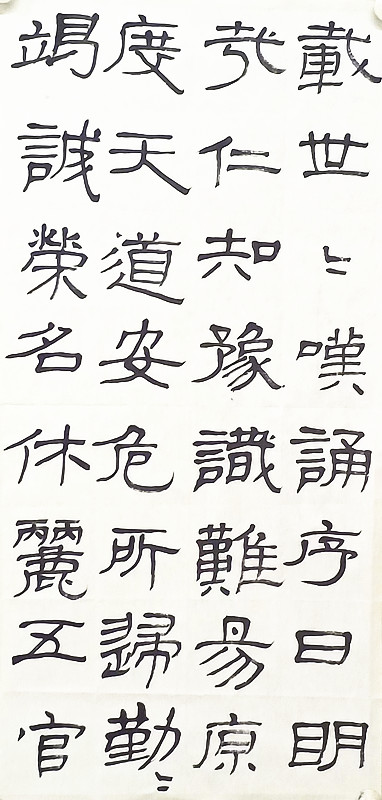 載世〻嘆誦序曰明
哉仁知豫識難易原
度天道安危所歸勤〻
竭誠榮名休麗五官